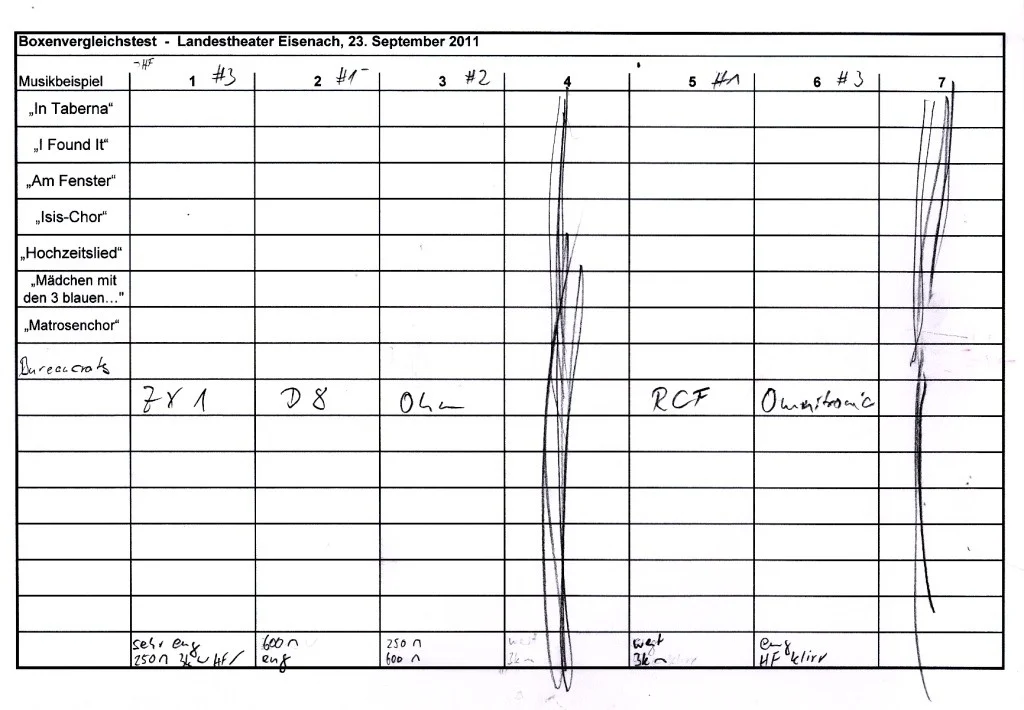 Boxenvergleichstest - Landestheater Eisenach, 23. September 2011
-HF
Musikbeispiel 1 #3 2 #1- 3 #2 4 5 #1 6 #3 7
„In Taberna“
„I Found It“
„Am Fenster“
„Isis-Chor“
„Hochzeitslied“
„Mädchen mit
den 3 blauen...“
„Matrosenchor“
Bureaucrats
D 8 Ohm RCF Omnitronic
sehr eng 600 250 eng
250 HF eng 600 3k HF klirr